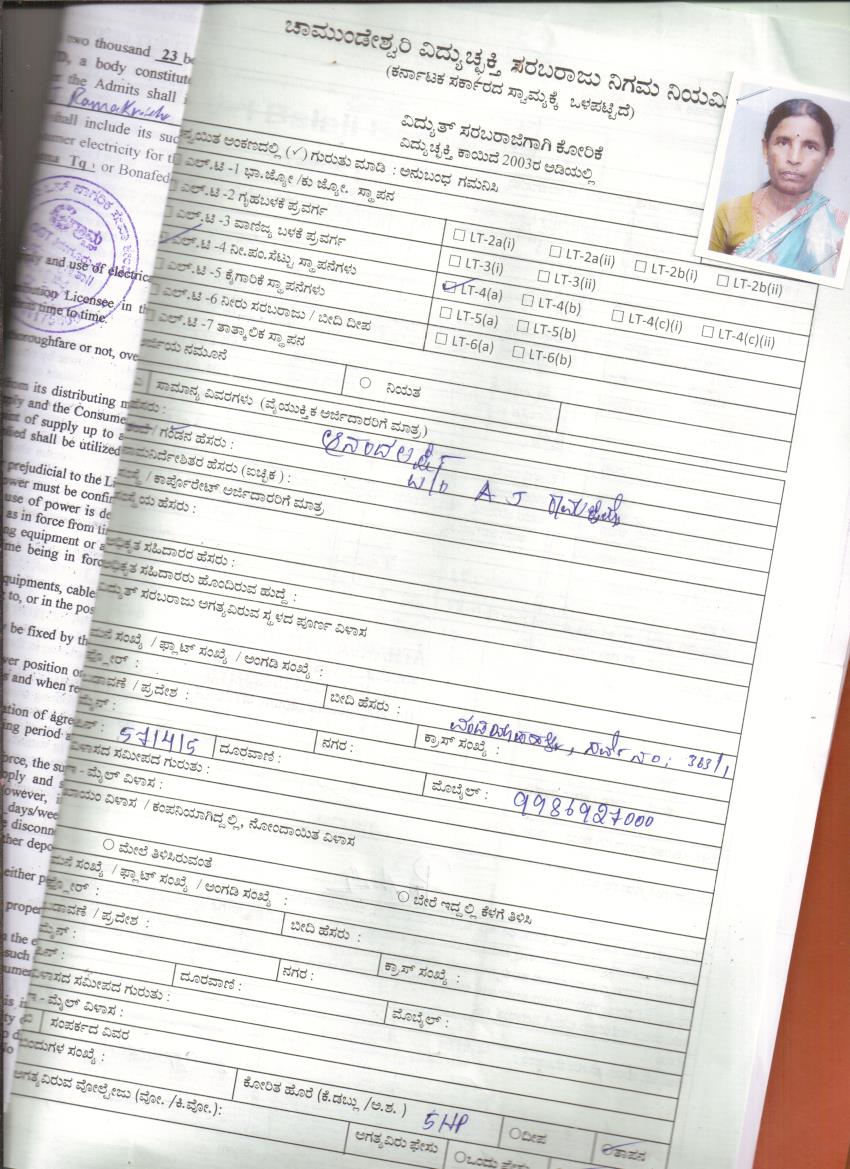 two thousand 23
D, a body constitute
the Admits shall
Rama
shall include its suc
sumer electricity for t
Tq, or Bonafed
ly and use of electrica
bution Licensee in th
time to time.
horoughfare or not, ove
from its distributing m
ply and the Consume
ent of supply up to a
ified shall be utilized
prejudicial to the Li
ower must be confir
use of power is de
as in force from ti
ng equipment or a
me being in forc
quipments, cable
to, or in the pos
y be fixed by th
wer position or
s and when re
ation of agre
ing period
orce, the su
pply and
owever, i
days/wee
e disconn
ther depo
either p
proper
ಚಾಮುಂಡೇಶ್ವರಿ ವಿದ್ಯುಚ್ಛಕ್ತಿ ಸರಬರಾಜು ನಿಗಮ ನಿಯಮಿ
(ಕರ್ನಾಟಕ ಸರ್ಕಾರದ ಸ್ವಾಮ್ಯಕ್ಕೆ ಒಳಪಟ್ಟಿದೆ)
ವಿದ್ಯುತ್ ಸರಬರಾಜಿಗಾಗಿ ಕೋರಿಕೆ
ವಿದ್ಯುಚ್ಛಕ್ತಿ ಕಾಯಿದೆ 2003ರ ಅಡಿಯಲ್ಲಿ
ನ್ವಯಿತ ಅಂಕಣದಲ್ಲಿ (✓) ಗುರುತು ಮಾಡಿ : ಅನುಬಂಧ ಗಮನಿಸಿ
ಎಲ್.ಟಿ -1 ಭಾ.ಜ್ಯೋ /ಕು ಜ್ಯೋ. ಸ್ಥಾಪನ
ಎಲ್.ಟಿ -2 ಗೃಹಬಳಕೆ ಪ್ರವರ್ಗ
☐ LT-2a(i) ☐ LT-2a(ii) ☐ LT-2b(i) ☐ LT-2b(ii)
ಎಲ್.ಟಿ -3 ವಾಣಿಜ್ಯ ಬಳಕೆ ಪ್ರವರ್ಗ
☐ LT-3(i) ☐ LT-3(ii)
ಎಲ್.ಟಿ -4 ನೀ.ಪಂ.ಸೆಟ್ಟು ಸ್ಥಾಪನೆಗಳು
☑ LT-4(a) ☐ LT-4(b) ☐ LT-4(c)(i) ☐ LT-4(c)(ii)
ಎಲ್.ಟಿ -5 ಕೈಗಾರಿಕೆ ಸ್ಥಾಪನೆಗಳು
☐ LT-5(a) ☐ LT-5(b)
ಎಲ್.ಟಿ -6 ನೀರು ಸರಬರಾಜು / ಬೀದಿ ದೀಪ
☐ LT-6(a) ☐ LT-6(b)
ಎಲ್.ಟಿ -7 ತಾತ್ಕಾಲಿಕ ಸ್ಥಾಪನ
ರ್ಜಿಯ ನಮೂನೆ
○ ನಿಯತ
ಸಾಮಾನ್ಯ ವಿವರಗಳು (ವೈಯುಕ್ತಿಕ ಅರ್ಜಿದಾರರಿಗೆ ಮಾತ್ರ)
ಹೆಸರು :
/ ಗಂಡನ ಹೆಸರು :
ನಾಮನಿರ್ದೇಶಿತರ ಹೆಸರು (ಐಚ್ಛಿಕ) :
W/o A J
ಸಂಸ್ಥೆ / ಕಾರ್ಪೊರೇಟ್ ಅರ್ಜಿದಾರರಿಗೆ ಮಾತ್ರ
ಸಂಸ್ಥೆಯ ಹೆಸರು :
ಅಧಿಕೃತ ಸಹಿದಾರರ ಹೆಸರು :
ಅಧಿಕೃತ ಸಹಿದಾರರು ಹೊಂದಿರುವ ಹುದ್ದೆ :
ವಿದ್ಯುತ್ ಸರಬರಾಜು ಅಗತ್ಯವಿರುವ ಸ್ಥಳದ ಪೂರ್ಣ ವಿಳಾಸ
ಮನೆ ಸಂಖ್ಯೆ / ಫ್ಲಾಟ್ ಸಂಖ್ಯೆ / ಅಂಗಡಿ ಸಂಖ್ಯೆ :
ಫ್ಲೋರ್ :
ಬಡಾವಣೆ / ಪ್ರದೇಶ :
ಬೀದಿ ಹೆಸರು :
ಮೈನ್ :
ಕ್ರಾಸ್ ಸಂಖ್ಯೆ :
ಸರ್ವೆ ನಂ: 363/1
ಪಿನ್ : 571415
ದೂರವಾಣಿ :
ನಗರ :
ವಿಳಾಸದ ಸಮೀಪದ ಗುರುತು :
ಮೊಬೈಲ್ : 9986927000
ಇ - ಮೈಲ್ ವಿಳಾಸ :
ಖಾಯಂ ವಿಳಾಸ / ಕಂಪನಿಯಾಗಿದ್ದಲ್ಲಿ, ನೋಂದಾಯಿತ ವಿಳಾಸ
○ ಮೇಲೆ ತಿಳಿಸಿರುವಂತೆ
○ ಬೇರೆ ಇದ್ದಲ್ಲಿ ಕೆಳಗೆ ತಿಳಿಸಿ
ಮನೆ ಸಂಖ್ಯೆ / ಫ್ಲಾಟ್ ಸಂಖ್ಯೆ / ಅಂಗಡಿ ಸಂಖ್ಯೆ :
ಫ್ಲೋರ್ :
ಬಡಾವಣೆ / ಪ್ರದೇಶ :
ಬೀದಿ ಹೆಸರು :
ಮೈನ್ :
ಕ್ರಾಸ್ ಸಂಖ್ಯೆ :
ಪಿನ್ :
ದೂರವಾಣಿ :
ನಗರ :
ವಿಳಾಸದ ಸಮೀಪದ ಗುರುತು :
ಮೊಬೈಲ್ :
ಇ - ಮೈಲ್ ವಿಳಾಸ :
ಸಂಪರ್ಕದ ವಿವರ
ಬಿಂದುಗಳ ಸಂಖ್ಯೆ :
ಕೋರಿತ ಹೊರೆ (ಕೆ.ಡಬ್ಲು /ಅ.ಶ. ) 5HP
○ದೀಪ
○ತಾಪನ
ಅಗತ್ಯವಿರುವ ವೋಲ್ಟೇಜು (ವೋ. /ಕಿ.ವೋ.):
ಅಗತ್ಯವಿರು ಫೇಸು
○ಒಂದು ಫೇಸು